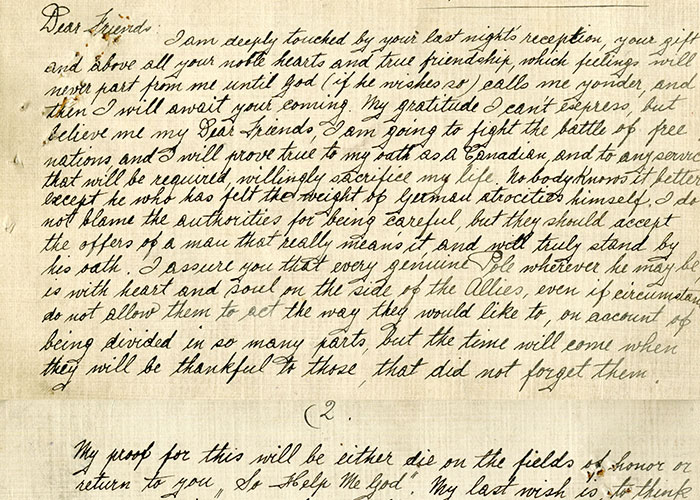 Dear Friends:
I am deeply touched by your last night's reception, your gift
and above all your noble hearts and true friendship, which feelings will
never part from me until God (if he wishes so) calls me yonder, and
then I will await your coming. My gratitude I can't express, but
believe me my Dear Friends, I am going to fight the battle of free
nations, and I will prove true to my oath as a Canadian, and to any servic
that will be required, willingly sacrifice my life. Nobody knows it better
except he who has felt the weight of German atrocities himself. I do
not blame the authorities for being careful, but they should accept
the offers of a man that really means it, and will truly stand by
his oath. I assure you that every genuine Pole wherever he may be
is with heart and soul on the side of the Allies, even if circumstan
do not allow them to act the way they would like to, on account of
being divided in so many parts, but the time will come when
they will be thankful to those, that did not forget them.
(2.
My proof for this will be either die on the fields of honor or
return to you „So Help Me God". My last wish is, to think